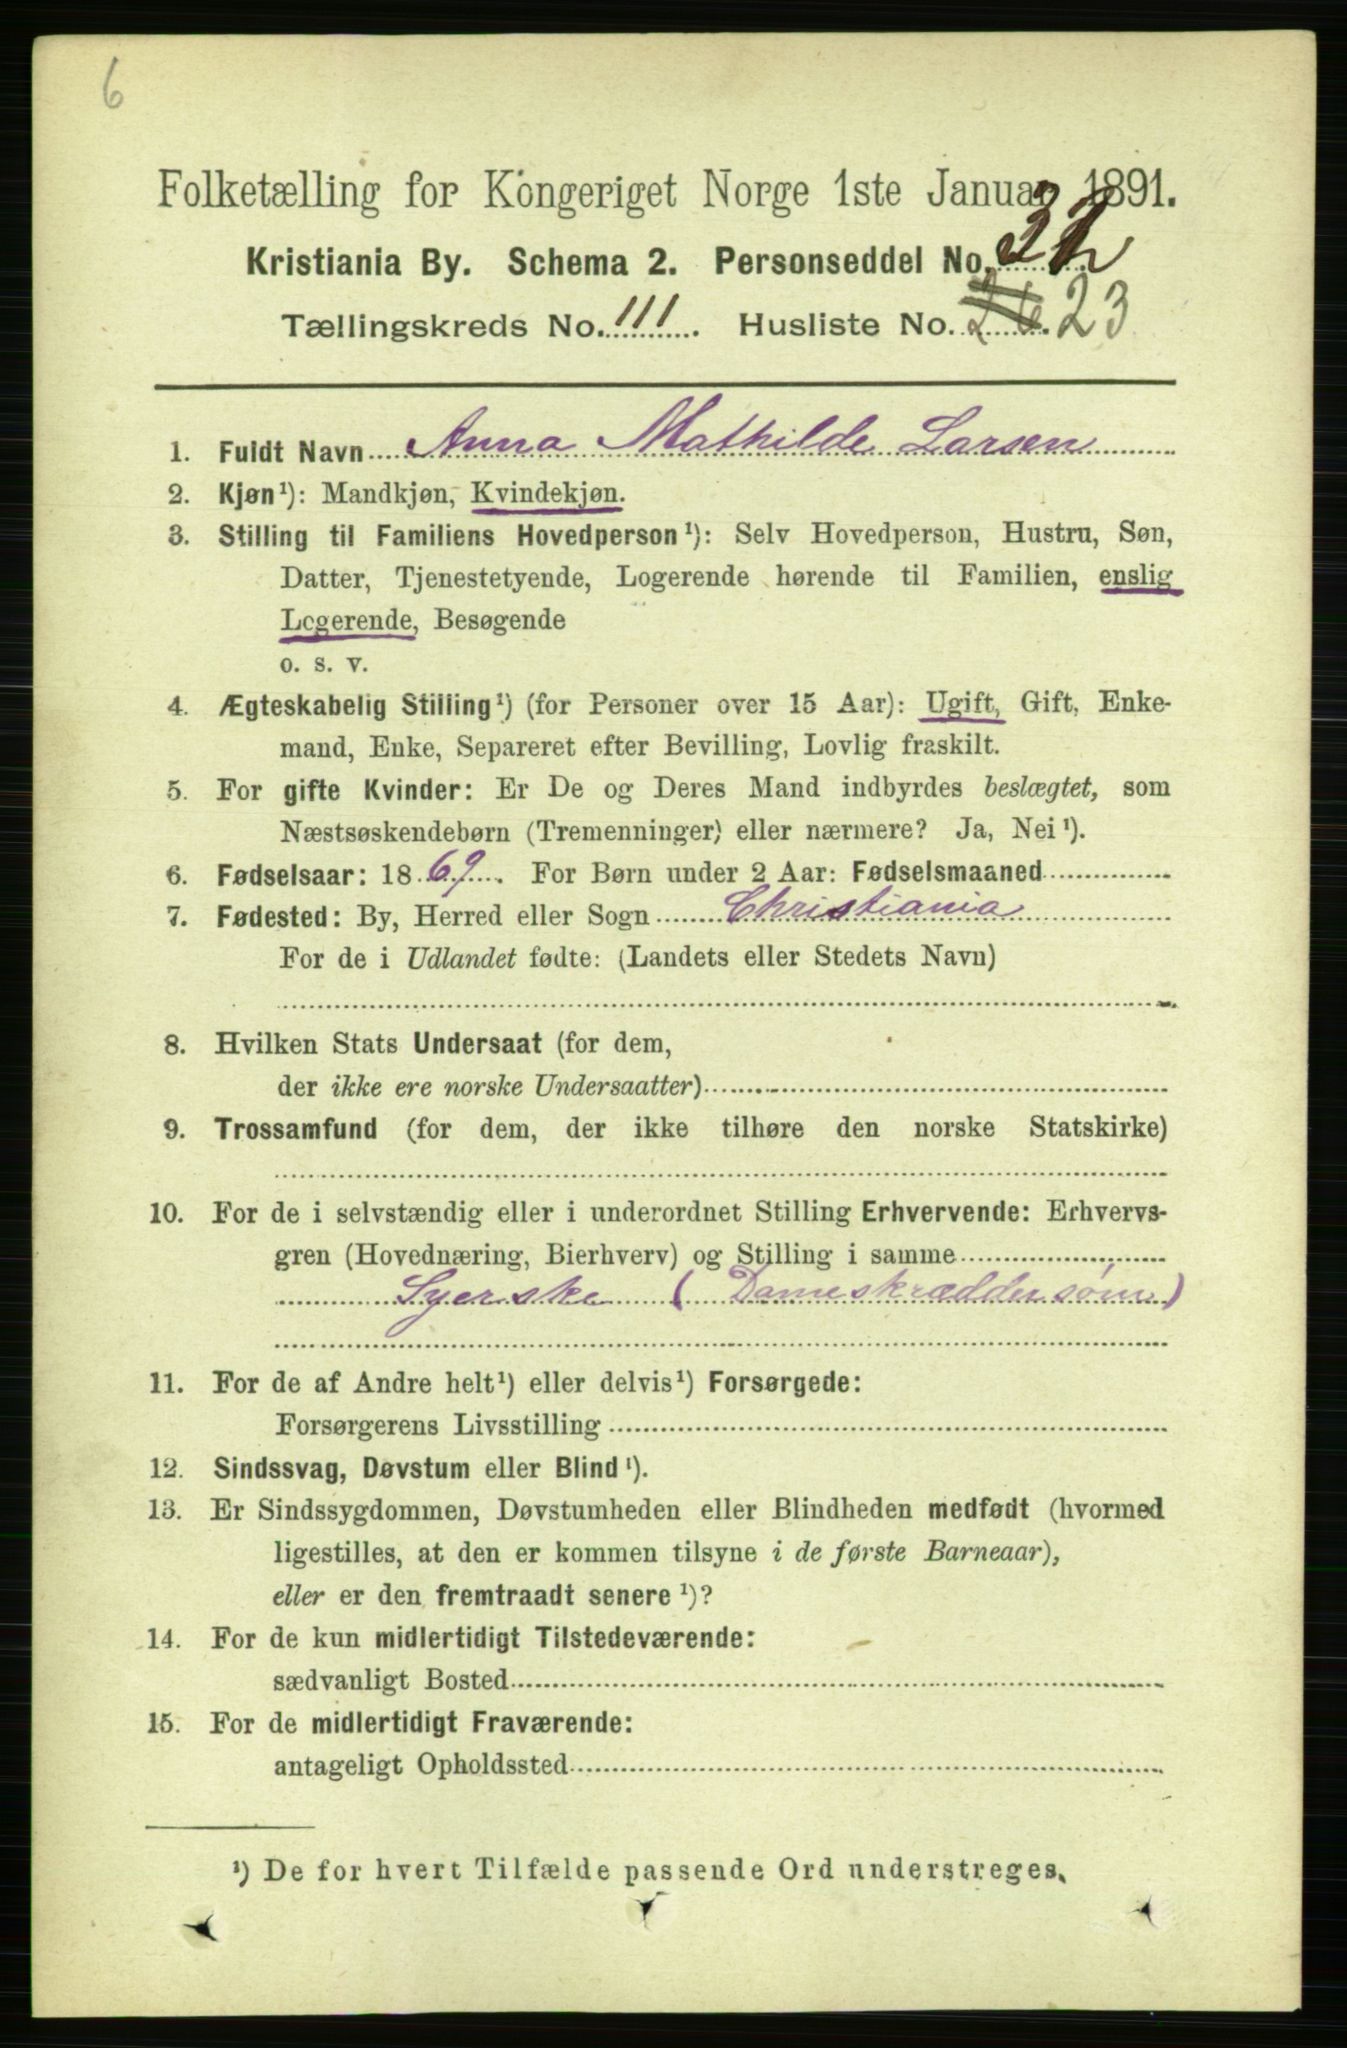 6
Folketælling for Kongeriget Norge 1ste Januar 1891.
Kristiania By. Schema 2. Personseddel No. 32
Tællingskreds No. 111. Husliste No. 26. 23
1. Fuldt Navn Anna Mathilde Larsen
2. Kjøn¹): Mandkjøn, Kvindekjøn.
3. Stilling til Familiens Hovedperson¹): Selv Hovedperson, Hustru, Søn,
Datter, Tjenestetyende, Logerende hørende til Familien, enslig
Logerende, Besøgende
o. s. v.
4. Ægteskabelig Stilling¹) (for Personer over 15 Aar): Ugift, Gift, Enke-
mand, Enke, Separeret efter Bevilling, Lovlig fraskilt.
5. For gifte Kvinder: Er De og Deres Mand indbyrdes beslægtet, som
Næstsøskendebørn (Tremenninger) eller nærmere? Ja, Nei¹).
6. Fødselsaar: 1869. For Børn under 2 Aar: Fødselsmaaned
7. Fødested: By, Herred eller Sogn Christiania
For de i Udlandet fødte: (Landets eller Stedets Navn)
8. Hvilken Stats Undersaat (for dem,
der ikke ere norske Undersaatter)
9. Trossamfund (for dem, der ikke tilhøre den norske Statskirke)
10. For de i selvstændig eller i underordnet Stilling Erhvervende: Erhvervs-
gren (Hovednæring, Bierhverv) og Stilling i samme
Syerske (Dameskræddersøm)
11. For de af Andre helt¹) eller delvis¹) Forsørgede:
Forsørgerens Livsstilling
12. Sindssvag, Døvstum eller Blind¹).
13. Er Sindssygdommen, Døvstumheden eller Blindheden medfødt (hvormed
ligestilles, at den er kommen tilsyne i de første Barneaar),
eller er den fremtraadt senere¹)?
14. For de kun midlertidigt Tilstedeværende:
sædvanligt Bosted
15. For de midlertidigt Fraværende:
antageligt Opholdssted
¹) De for hvert Tilfælde passende Ord understreges.